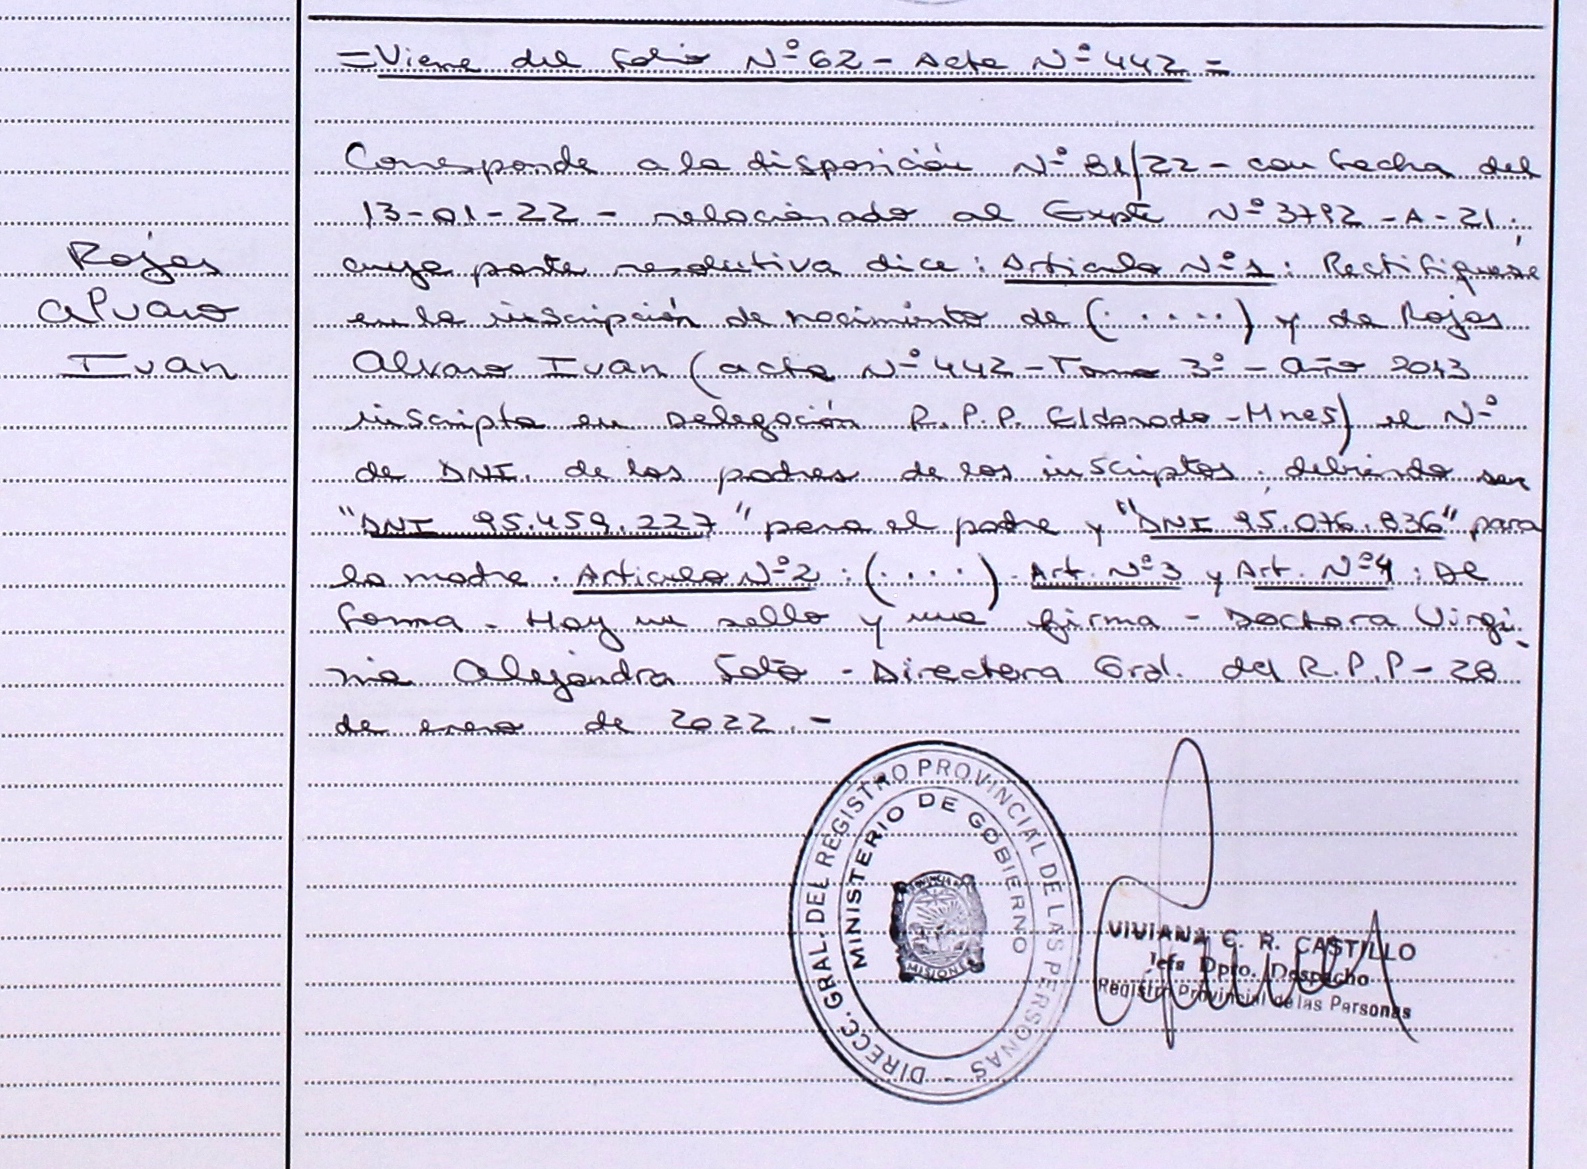 =Viene del folio Nº 62 - Acta Nº 442 =
Corresponde a la disposición Nº 81/22 - con fecha del
13-01-22 - relacionado al Expte Nº 3792 - A - 21;
cuya parte resolutiva dice: Articulo Nº 1: Rectifiquese
en la inscripción de nacimiento de (.....) y de Rojas
Alvaro Ivan (acta Nº 442 - Tomo 3º - Año 2013
inscripta en Delegación R.P.P. Eldorado - Mnes) el Nº
de DNI. de los padres de los inscriptos, debiendo ser
"DNI 95.459.227" para el padre y "DNI 95.076.836" para
la madre. Articulo Nº 2: (....). Art. Nº 3 y Art. Nº 4: De
forma - Hay un sello y una firma - Doctora Virgi-
nia Alejandra Soto - Directora Gral. del R.P.P - 28
de enero de 2022. -
Rojas
Alvaro
Ivan
DIRECC. GRAL. DEL REGISTRO PROVINCIAL DE LAS PERSONAS -
MINISTERIO DE GOBIERNO
PROVINCIA DE
MISIONES
VIVIANA C. R. CASTILLO
Jefa Dpto. Despacho
Registro Provincial de las Personas